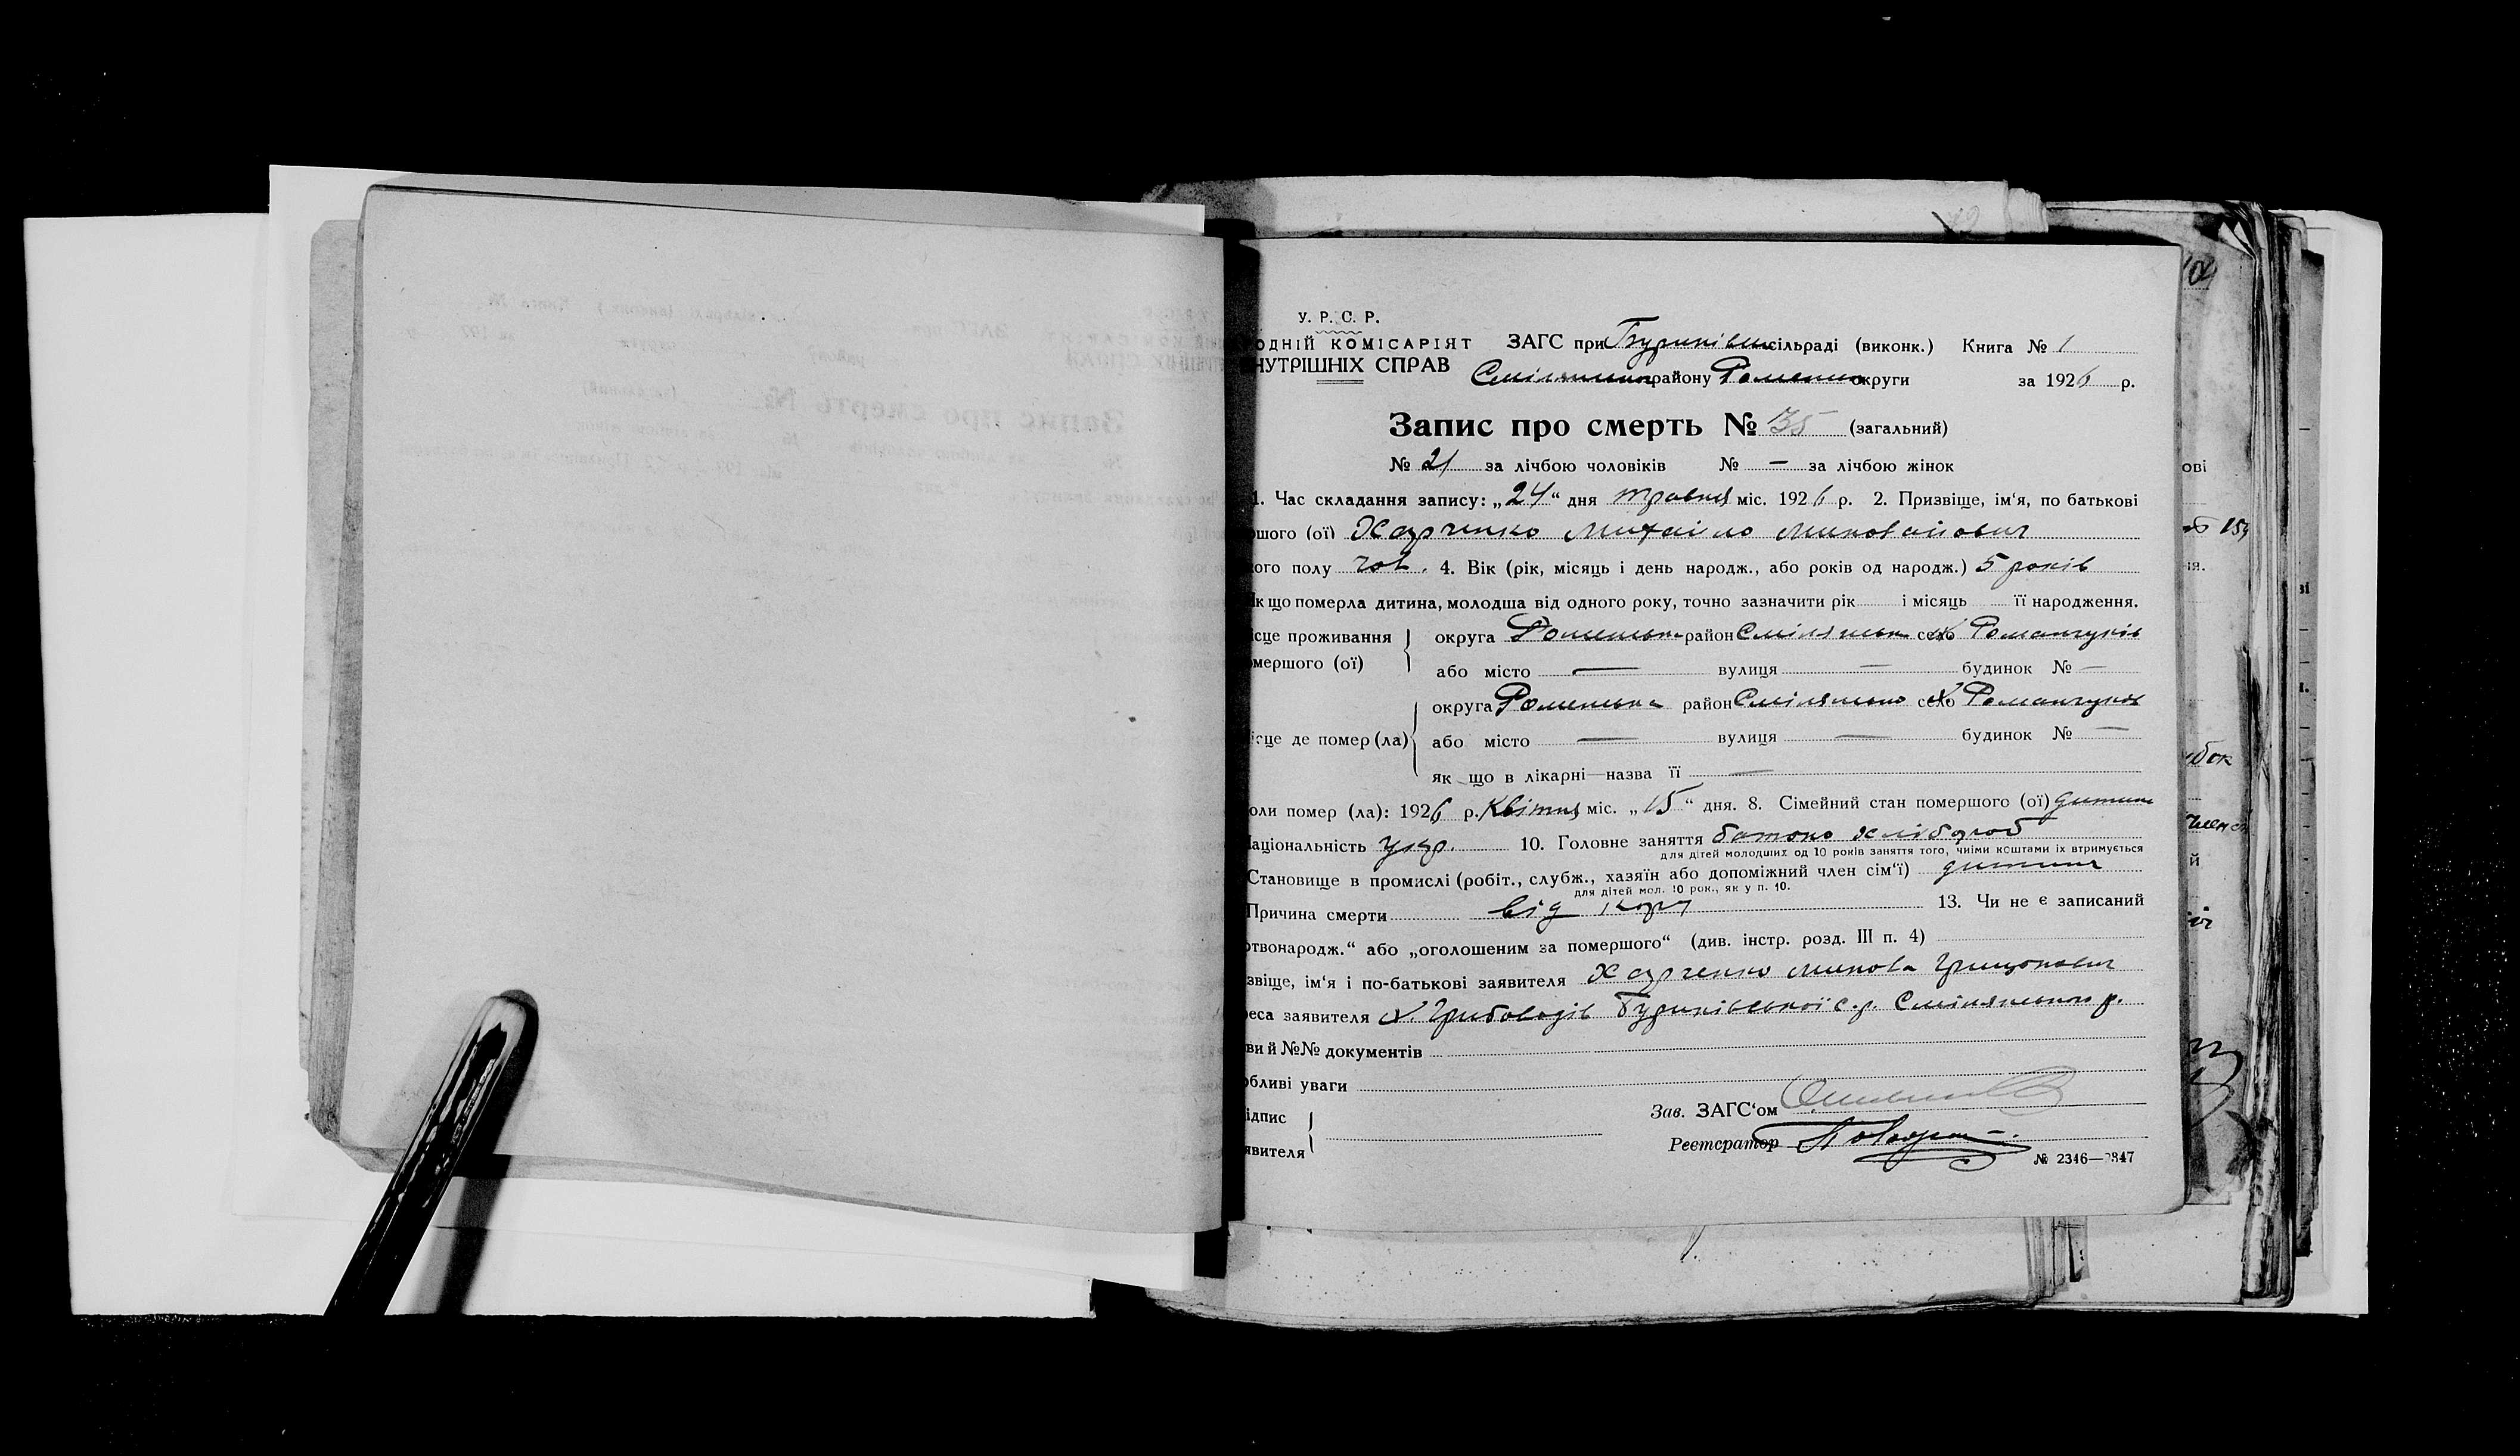 У. Р. С. Р.
ОДНІЙ КОМІСАРІЯТ ЗАГС при сільраді (виконк.) Книга № 1
НУТРІШНІХ СПРАВ району округи за 1926 р.
Запис про смерть № 35 (загальний)
№ 21 за лічбою чоловіків № — за лічбою жінок
1. Час складання запису: „24“ дня травня міс. 1926 р. 2. Призвіще, ім‘я, по батькові
ршого (ої) Харченко Михайло Миновайович
ого полу чол. 4. Вік (рік, місяць і день народж., або років од народж.) 5 років
Як що померла дитина, молодша від одного року, точно зазначити рік і місяць її народження.
ісце проживання округа Роменська район Смілянськ село Романчуків
мершого (ої) або місто — вулиця — будинок № —
округа Роменська район Смілянськ село Романчуків
ісце де помер (ла) або місто — вулиця — будинок № —
як що в лікарні—назва її —
оли помер (ла): 1926 р. Квітня міс. „15“ дня. 8. Сімейний стан помершого (ої) дитина
аціональність укр. 10. Головне заняття батько хлібороб
для дітей молодших од 10 років заняття того, чиїми коштами їх втримується
Становище в промислі (робіт., служб., хазяїн або допоміжний член сім‘ї) дитина
для дітей мол. 10 рок., як у п. 10.
Причина смерти від кору 13. Чи не є записаний
ртвонародж.“ або „оголошеним за помершого“ (див. інстр. розд. III п. 4)
звіще, ім‘я і по-батькові заявителя Харченко Минова Грицькович
реса заявителя х. Буринівської с.р. Смілянського р.
ви й №№ документів
обливі уваги
ідпис Зав. ЗАГС‘ом
явителя Реєтсратор
№ 2346—2347